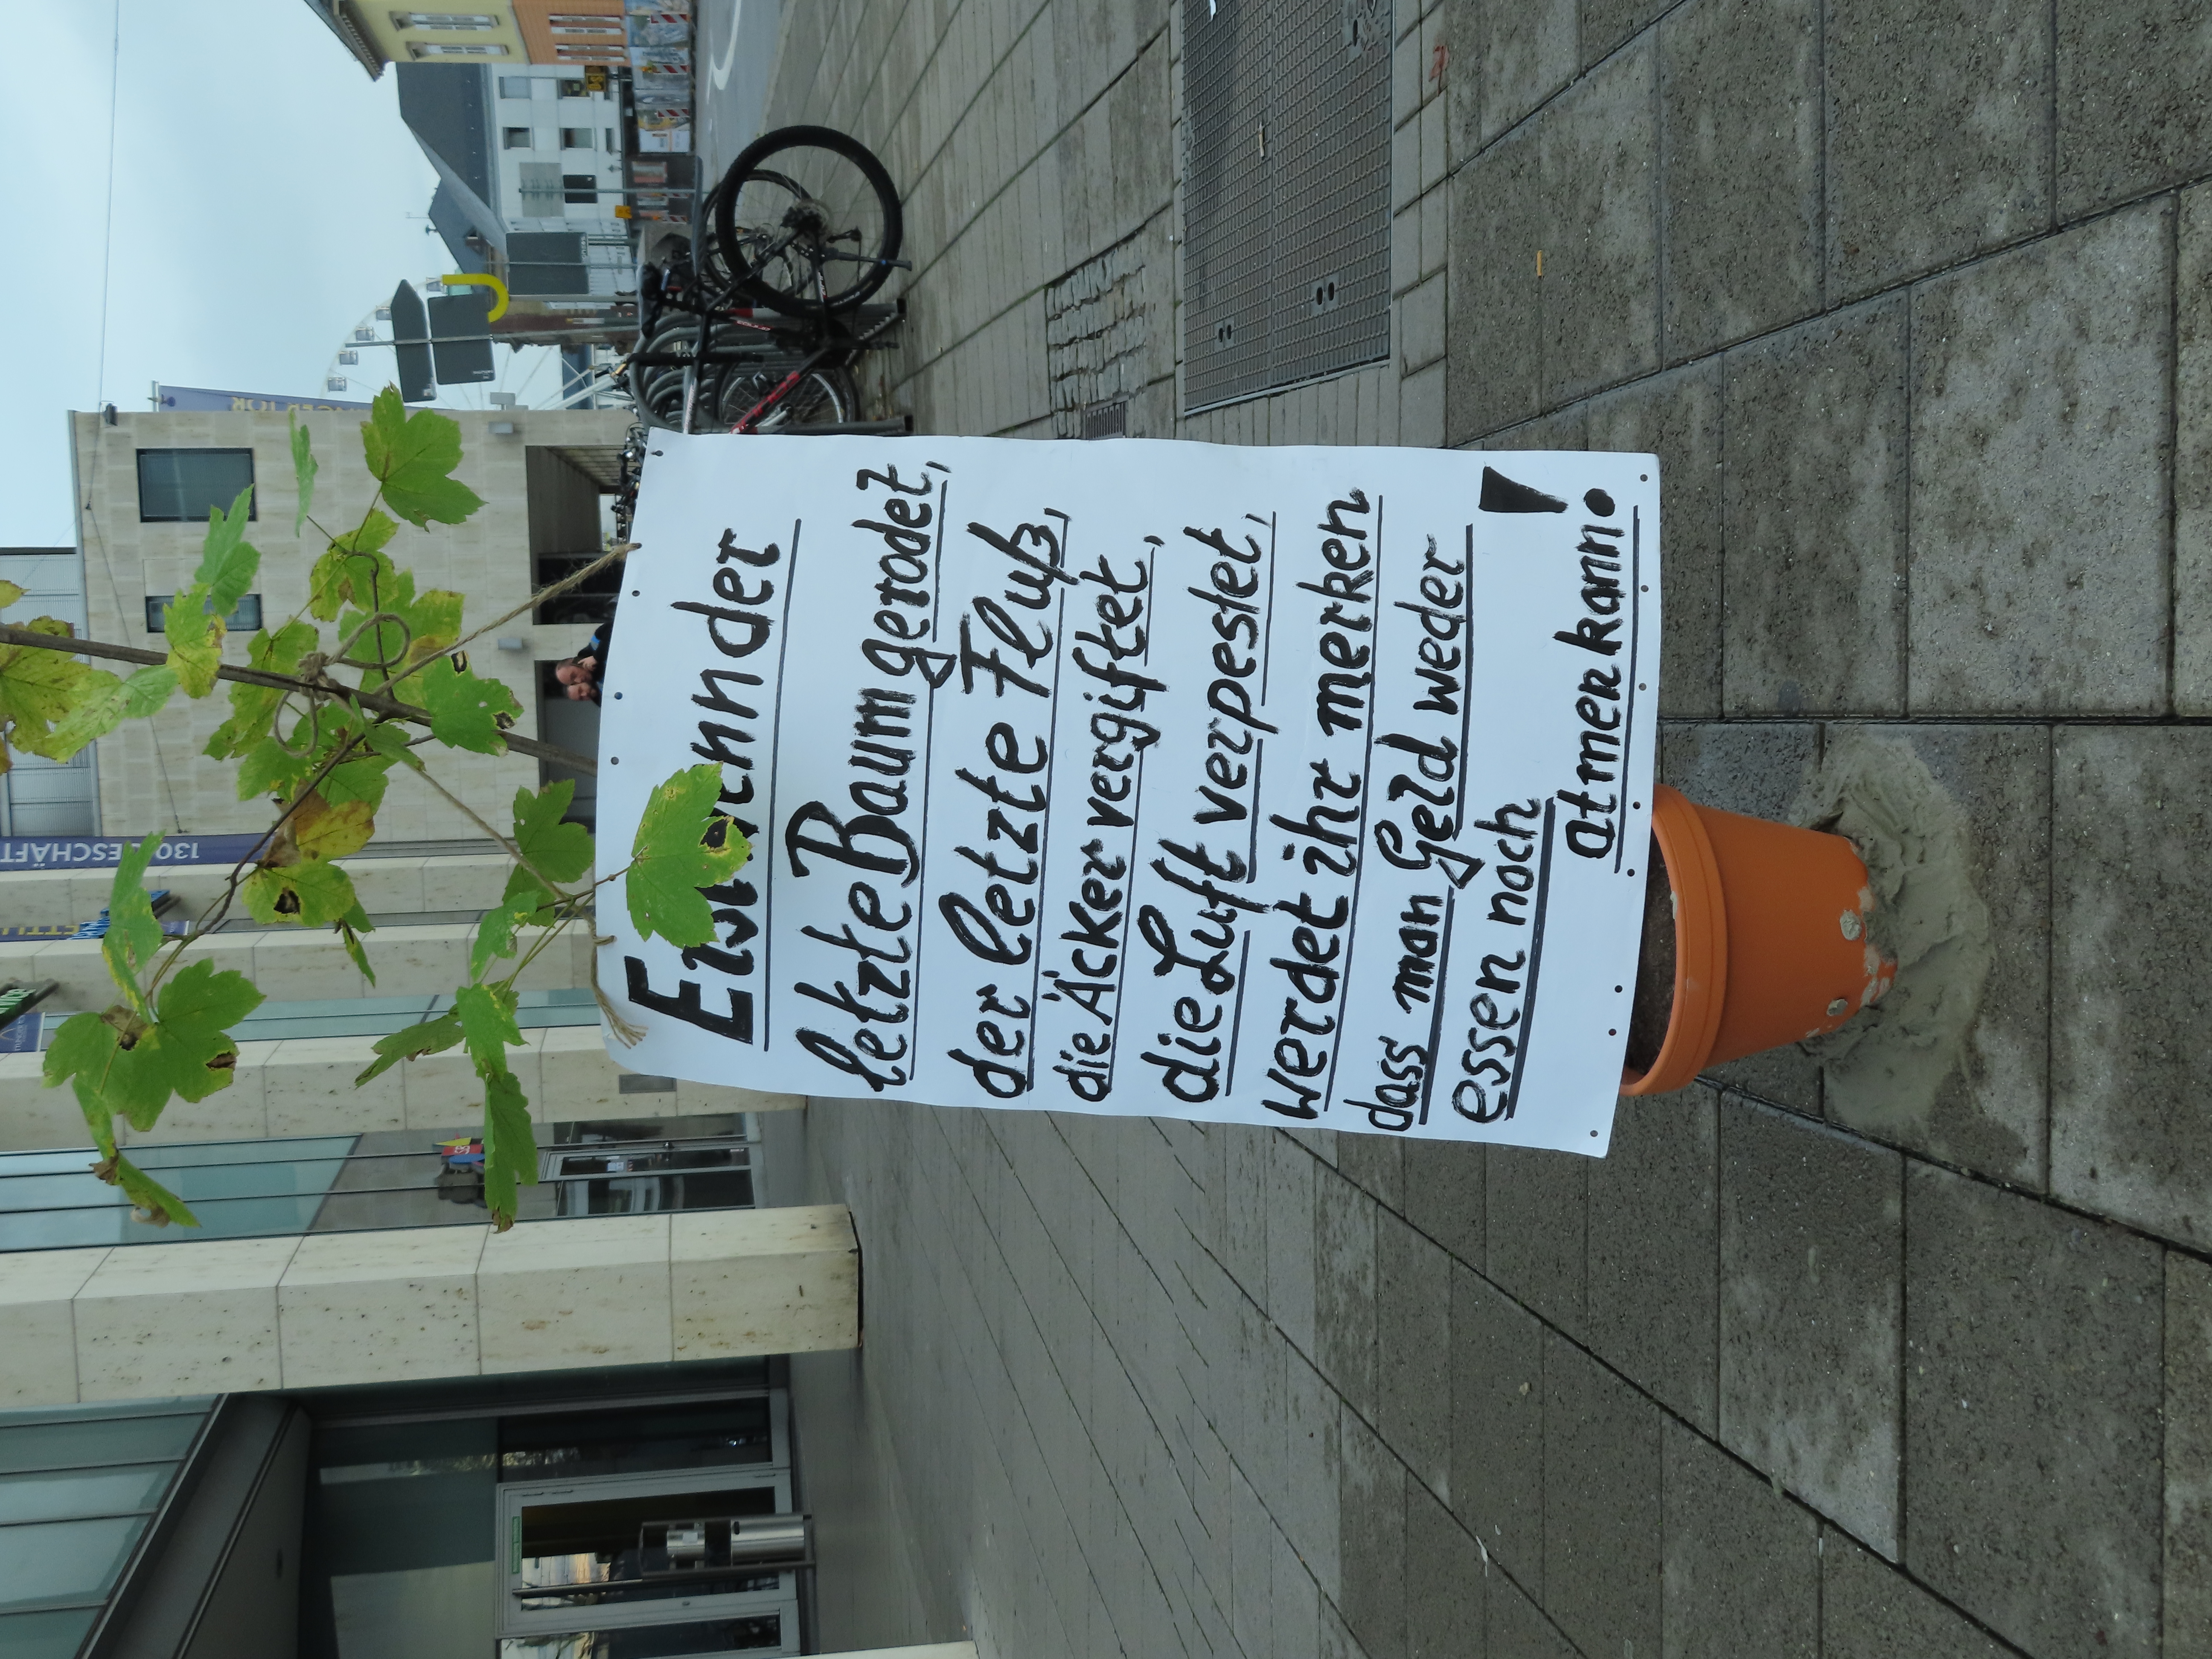 Erst wenn der
letzte Baum gerodet,
der letzte Fluß,
die Äcker vergiftet,
die Luft verpestet,
werdet ihr merken
dass man Geld weder
essen noch
atmen kann!
130 GESCHÄFT